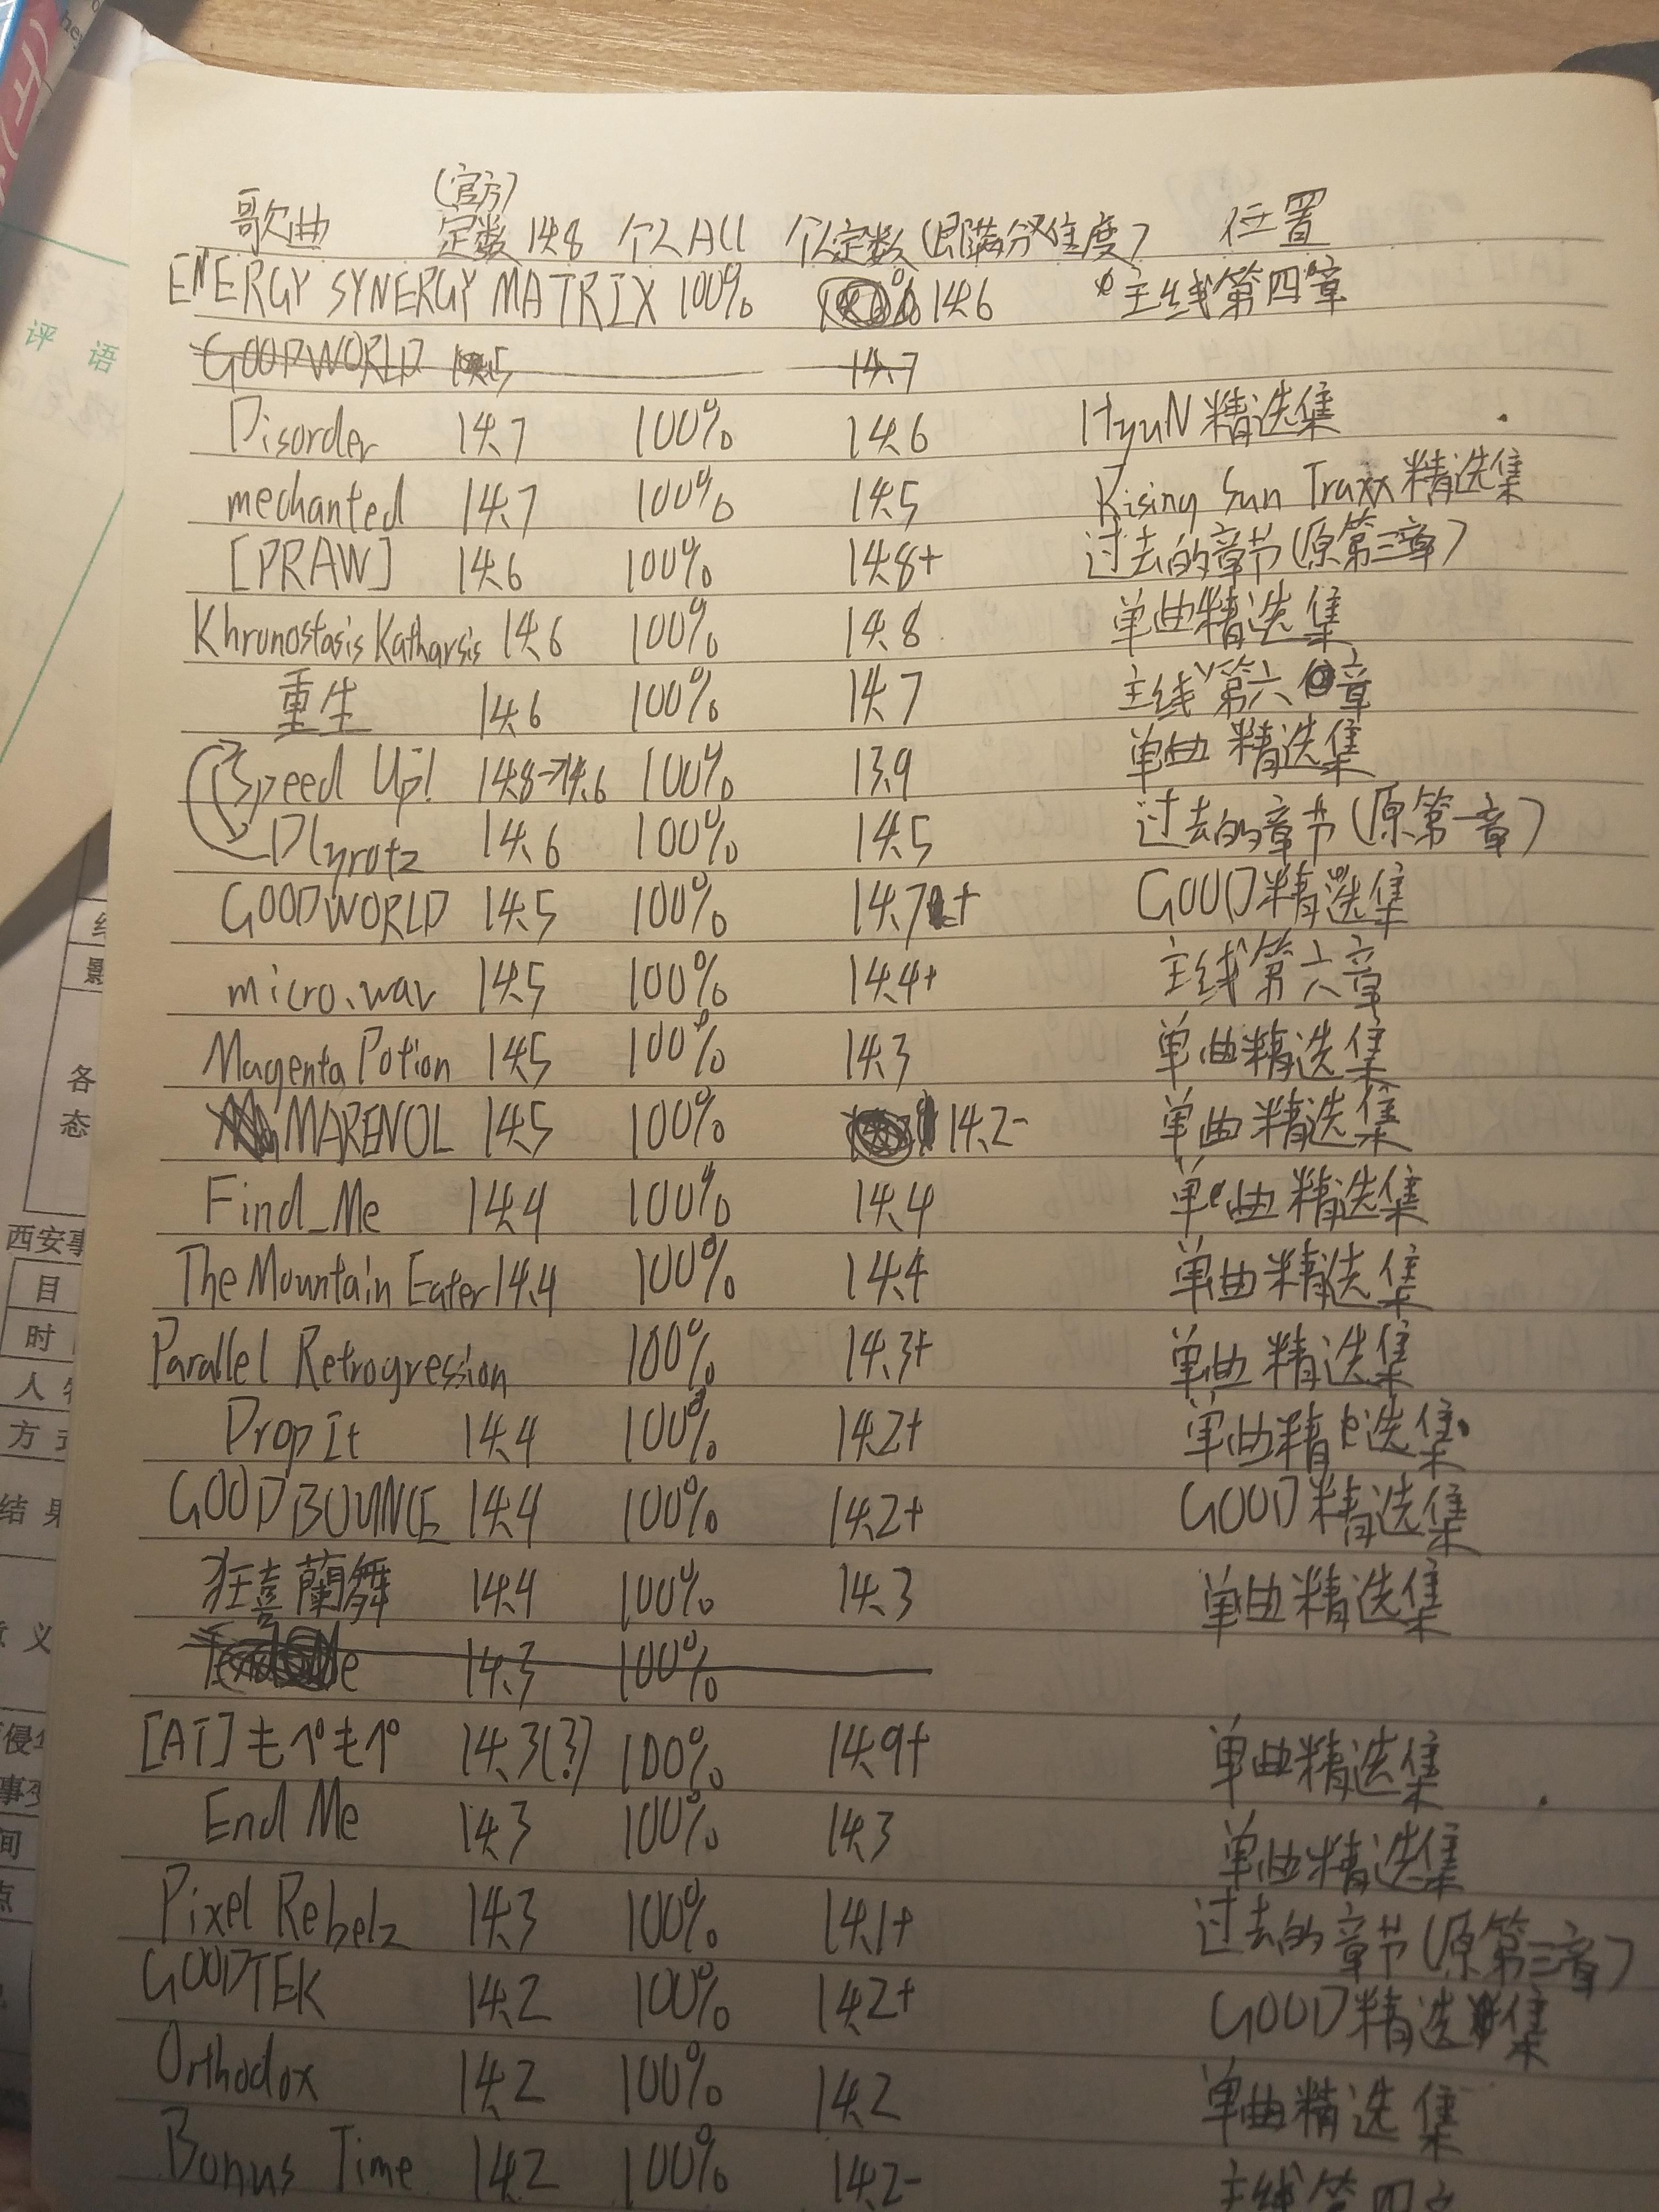 (官方)
歌曲 定数 14.8 个人ACC 个人定数(即满分难度) 位置
ENERGY SYNERGY MATRIX 100% 14.6 主线第四章
GOODWORLD 14.7
Disorder 14.7 100% 14.6 HyuN精选集
mechanted 14.7 100% 14.5 Rising Sun Traxx精选集
[PRAW] 14.6 100% 14.8+ 过去的章节(原第三章)
Khronostasis Katharsis 14.6 100% 14.8 单曲精选集
重生 14.6 100% 14.7 主线第六章
Speed Up! 14.8→14.6 100% 13.9 单曲精选集
Dlyrotz 14.6 100% 14.5 过去的章节(原第一章)
GOODWORLD 14.5 100% 14.7+ GOOD精选集
micro.wav 14.5 100% 14.4+ 主线第六章
Magenta Potion 14.5 100% 14.3 单曲精选集
MARENOL 14.5 100% 14.2- 单曲精选集
Find_Me 14.4 100% 14.4 单曲精选集
The Mountain Eater 14.4 100% 14.4 单曲精选集
Parallel Retrogression 100% 14.3+ 单曲精选集
Drop It 14.4 100% 14.2+ 单曲精选集
GOODBOUNCE 14.4 100% 14.2+ GOOD精选集
狂喜蘭舞 14.4 100% 14.3 单曲精选集
14.3 100%
[AT]もぺもぺ 14.3(?) 100% 14.9+ 单曲精选集
End Me 14.3 100% 14.3 单曲精选集
Pixel Rebelz 14.3 100% 14.1+ 过去的章节(原第三章)
GOODTEK 14.2 100% 14.2+ GOOD精选集
Orthodox 14.2 100% 14.2 单曲精选集
Bonus Time 14.2 100% 14.2- 主线第四章
评 语
各
态
西安事
目
时
人
方式
结果
意义
侵华
事变
间
点